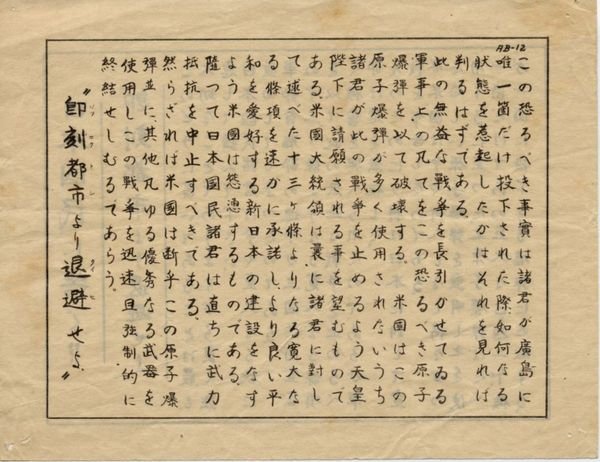 AB-12
この恐るべき事實は諸君が廣島に
唯一箇だけ投下された際、如何なる
狀態を惹起したかはそれを見れば
判るはずである、
此の無益な戰爭を長引かせてゐる
軍事上の凡てをこの恐るべき原子
爆彈を以て破壞する、米國はこの
原子爆彈が多く使用されないうち
諸君が此の戰爭を止めるよう天皇
陛下に請願される事を望むもので
ある、米國大統領は曩に諸君に對し
て述べた十三ヶ條よりなる寬大な
る條項を速かに承諾し、より良い平
和を愛好する新日本の建設をなす
よう米國は慫慂するものである、
隨つて日本國民諸君は直ちに武力
抵抗を中止すべきである、
然らざれば米國は斷乎この原子爆
彈並に、其他凡ゆる優秀なる武器を
使用しこの戰爭を迅速且强制的に
終結せしむるであらう、
"即刻都市より退避せよ"